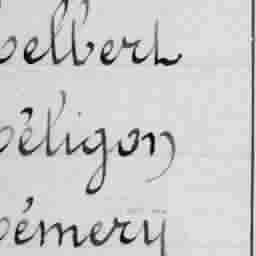 elbert
éligon
émery